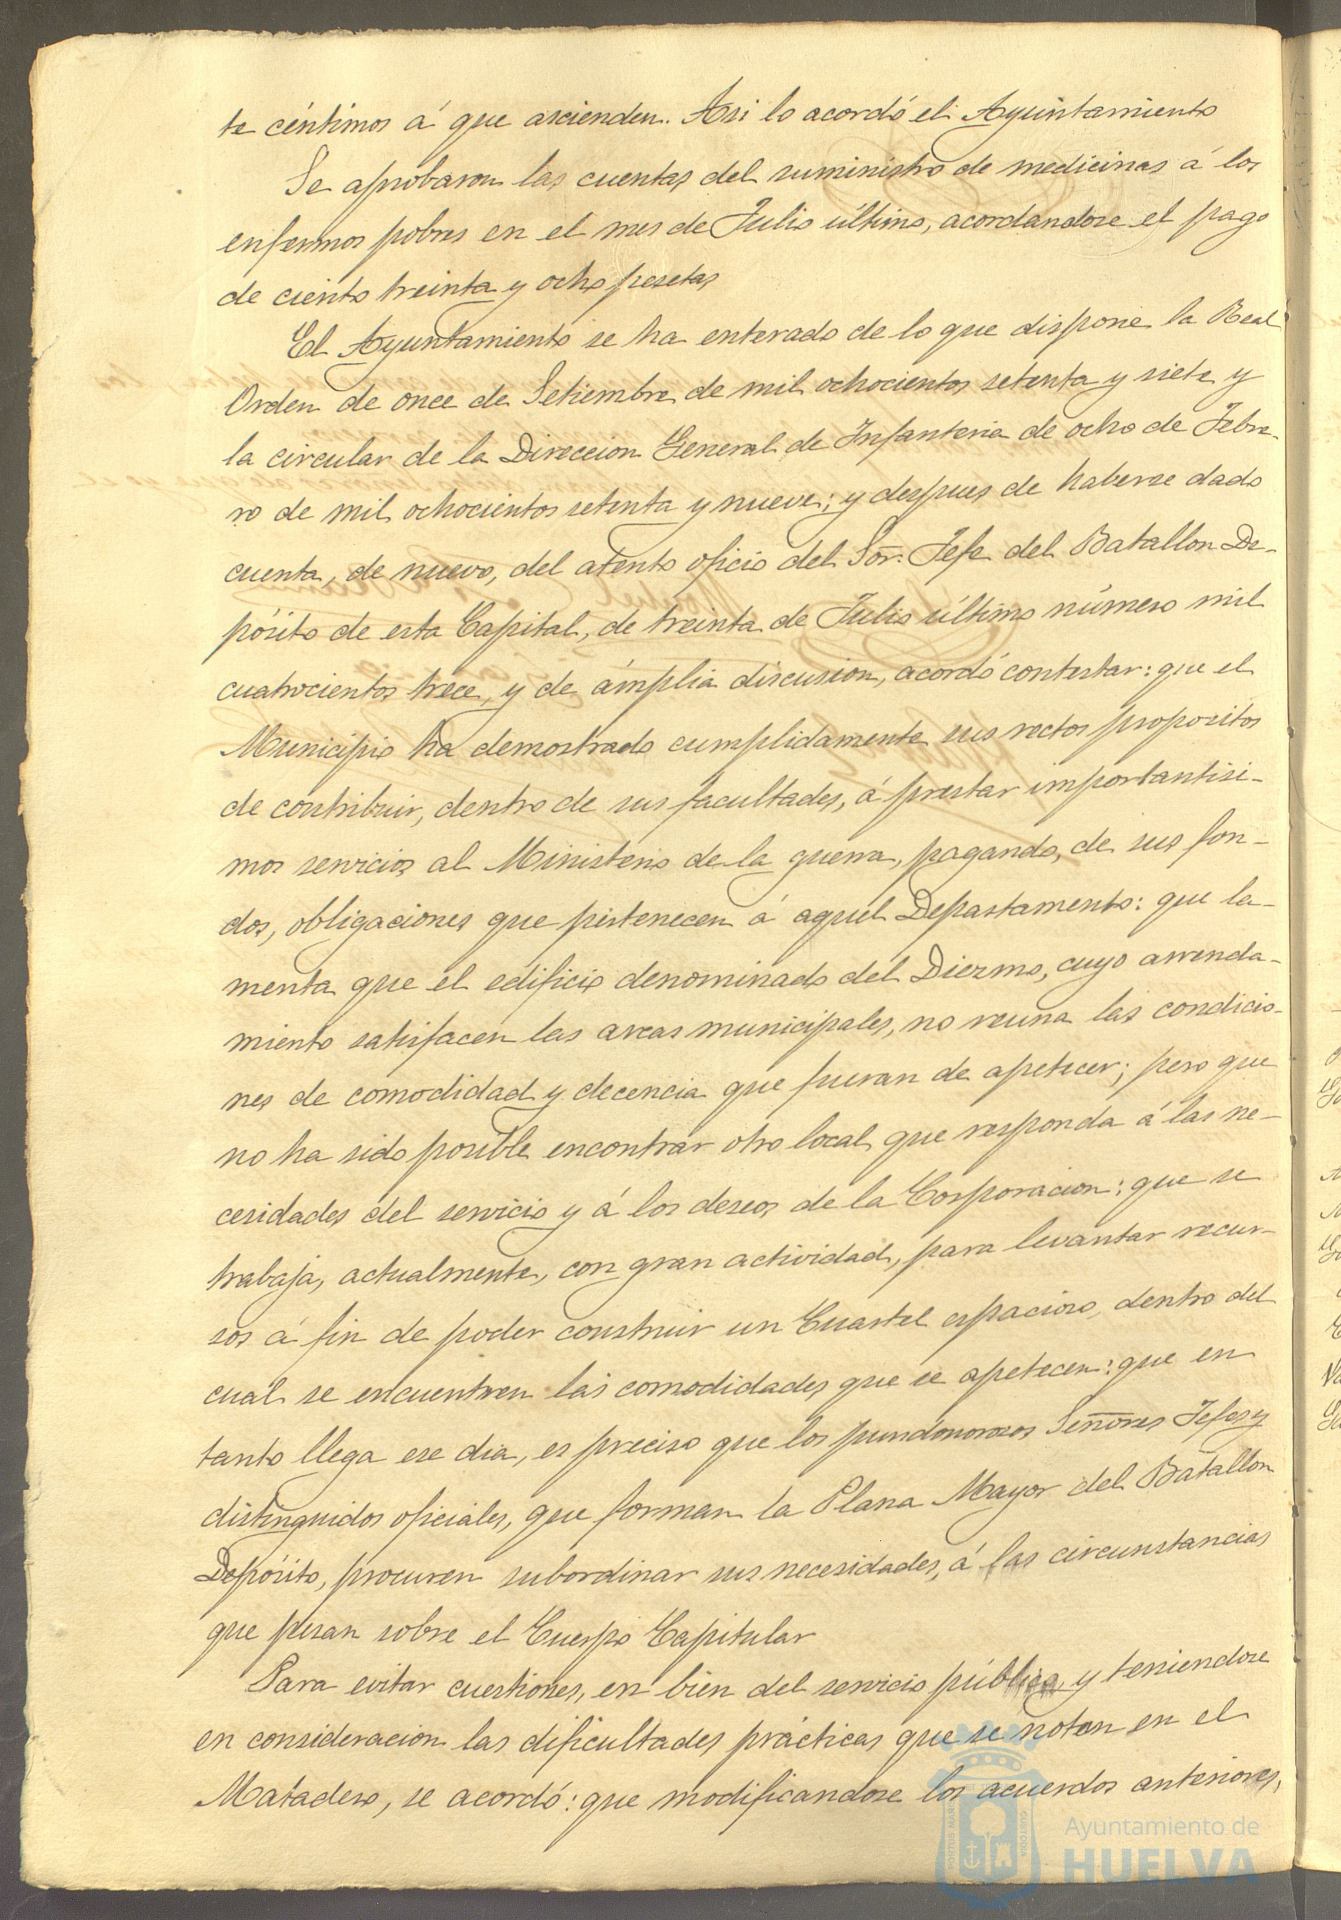 te céntimos á que ascienden. Asi lo acordó el Ayuntamiento
Se aprobaron las cuentas del suministro de medicinas á los
enfermos pobres en el mes de Julio último, acordandose el pago
de ciento treinta y ocho pesetas
El Ayuntamiento se ha enterado de lo que dispone la Real
Orden de once de Setiembre de mil ochocientos setenta y siete y
la circular de la Direccion General de Infanteria de ocho de Febre-
ro de mil ochocientos setenta y nueve; y despues de haberse dado
cuenta, de nuevo, del atento oficio del Sor. Jefe del Batallon De-
pósito de esta Capital, de treinta de Julio último número mil
cuatrocientos trece, y de ámplia discusion, acordó contestar: que el
Municipio ha demostrado cumplidamente sus rectos propositos
de contribuir, dentro de sus facultades, á prestar importantisi-
mos servicios al Ministerio de la guerra, pagando, de sus fon-
dos, obligaciones que pertenecen á aquel Departamento: que la-
menta que el edificio denominado del Diezmo, cuyo arrenda-
miento satisfacen las arcas municipales, no reuna las condicio-
nes de comodidad y decencia que fueran de apetecer; pero que
no ha sido posible encontrar otro local que responda á las ne-
cesidades del servicio y á los deseos de la Corporacion: que se
trabaja, actualmente, con gran actividad, para levantar recur-
sos á fin de poder construir un Cuartel espacioso, dentro del
cual se encuentren las comodidades que se apetecen: que en
tanto llega ese dia, es preciso que los pundonorosos Señores Jefes y
distinguidos oficiales, que forman la Plana Mayor del Batallon
Depósito, procuren subordinar sus necesidades, á las circunstancias
que pesan sobre el Cuerpo Capitular
Para evitar cuestiones, en bien del servicio público, y teniendose
en consideracion las dificultades prácticas que se notan en el
Matadero, se acordó: que modificandose los acuerdos anteriores,
Ayuntamiento de
HUELVA